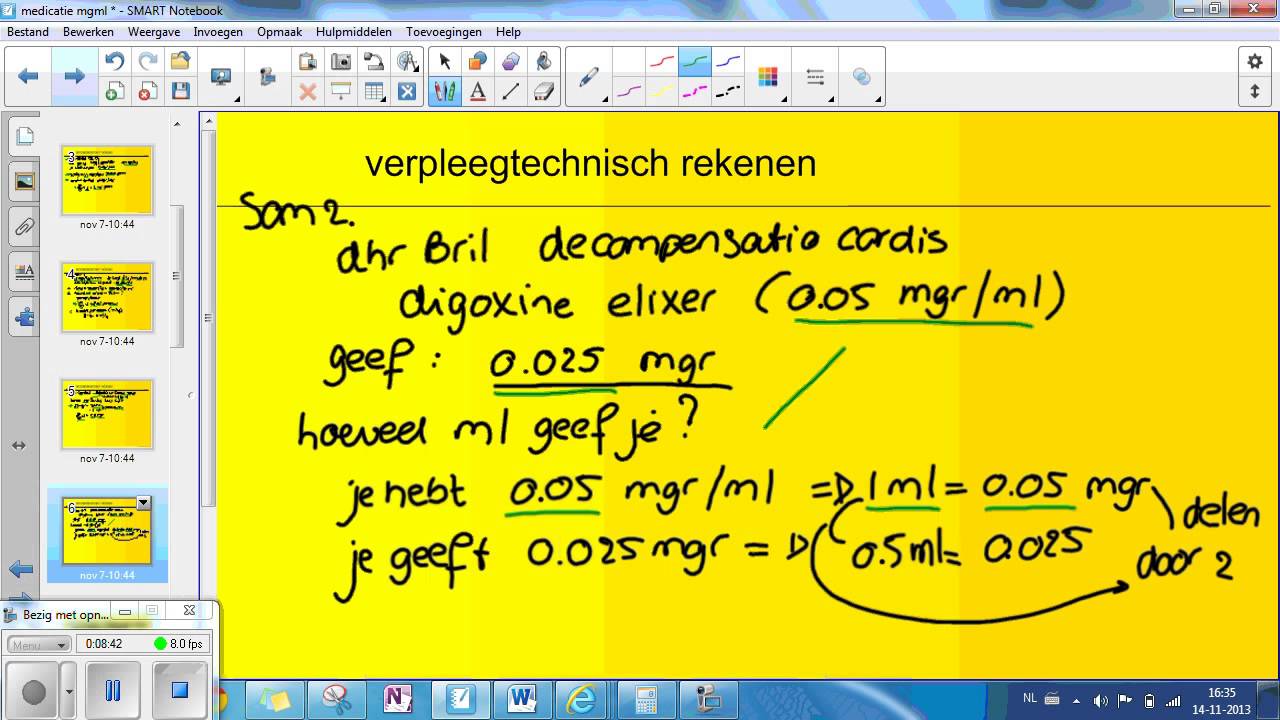 medicatie mgml * - SMART Notebook
Bestand Bewerken Weergave Invoegen Opmaak Hulpmiddelen Toevoegingen Help
verpleegtechnisch rekenen
Som 2.
dhr Bril decompensatio cordis
digoxine elixer (0.05 mgr/ml)
geef : 0.025 mgr
hoeveel ml geef je ?
je hebt 0.05 mgr/ml => 1ml = 0.05 mgr
je geeft 0.025 mgr => 0.5ml = 0.025
delen
door 2
3
nov 7-10:44
4
nov 7-10:44
5
nov 7-10:44
6
nov 7-10:44
Bezig met opn...
Menu
0:08:42
8.0 fps
NL
16:35
14-11-2013